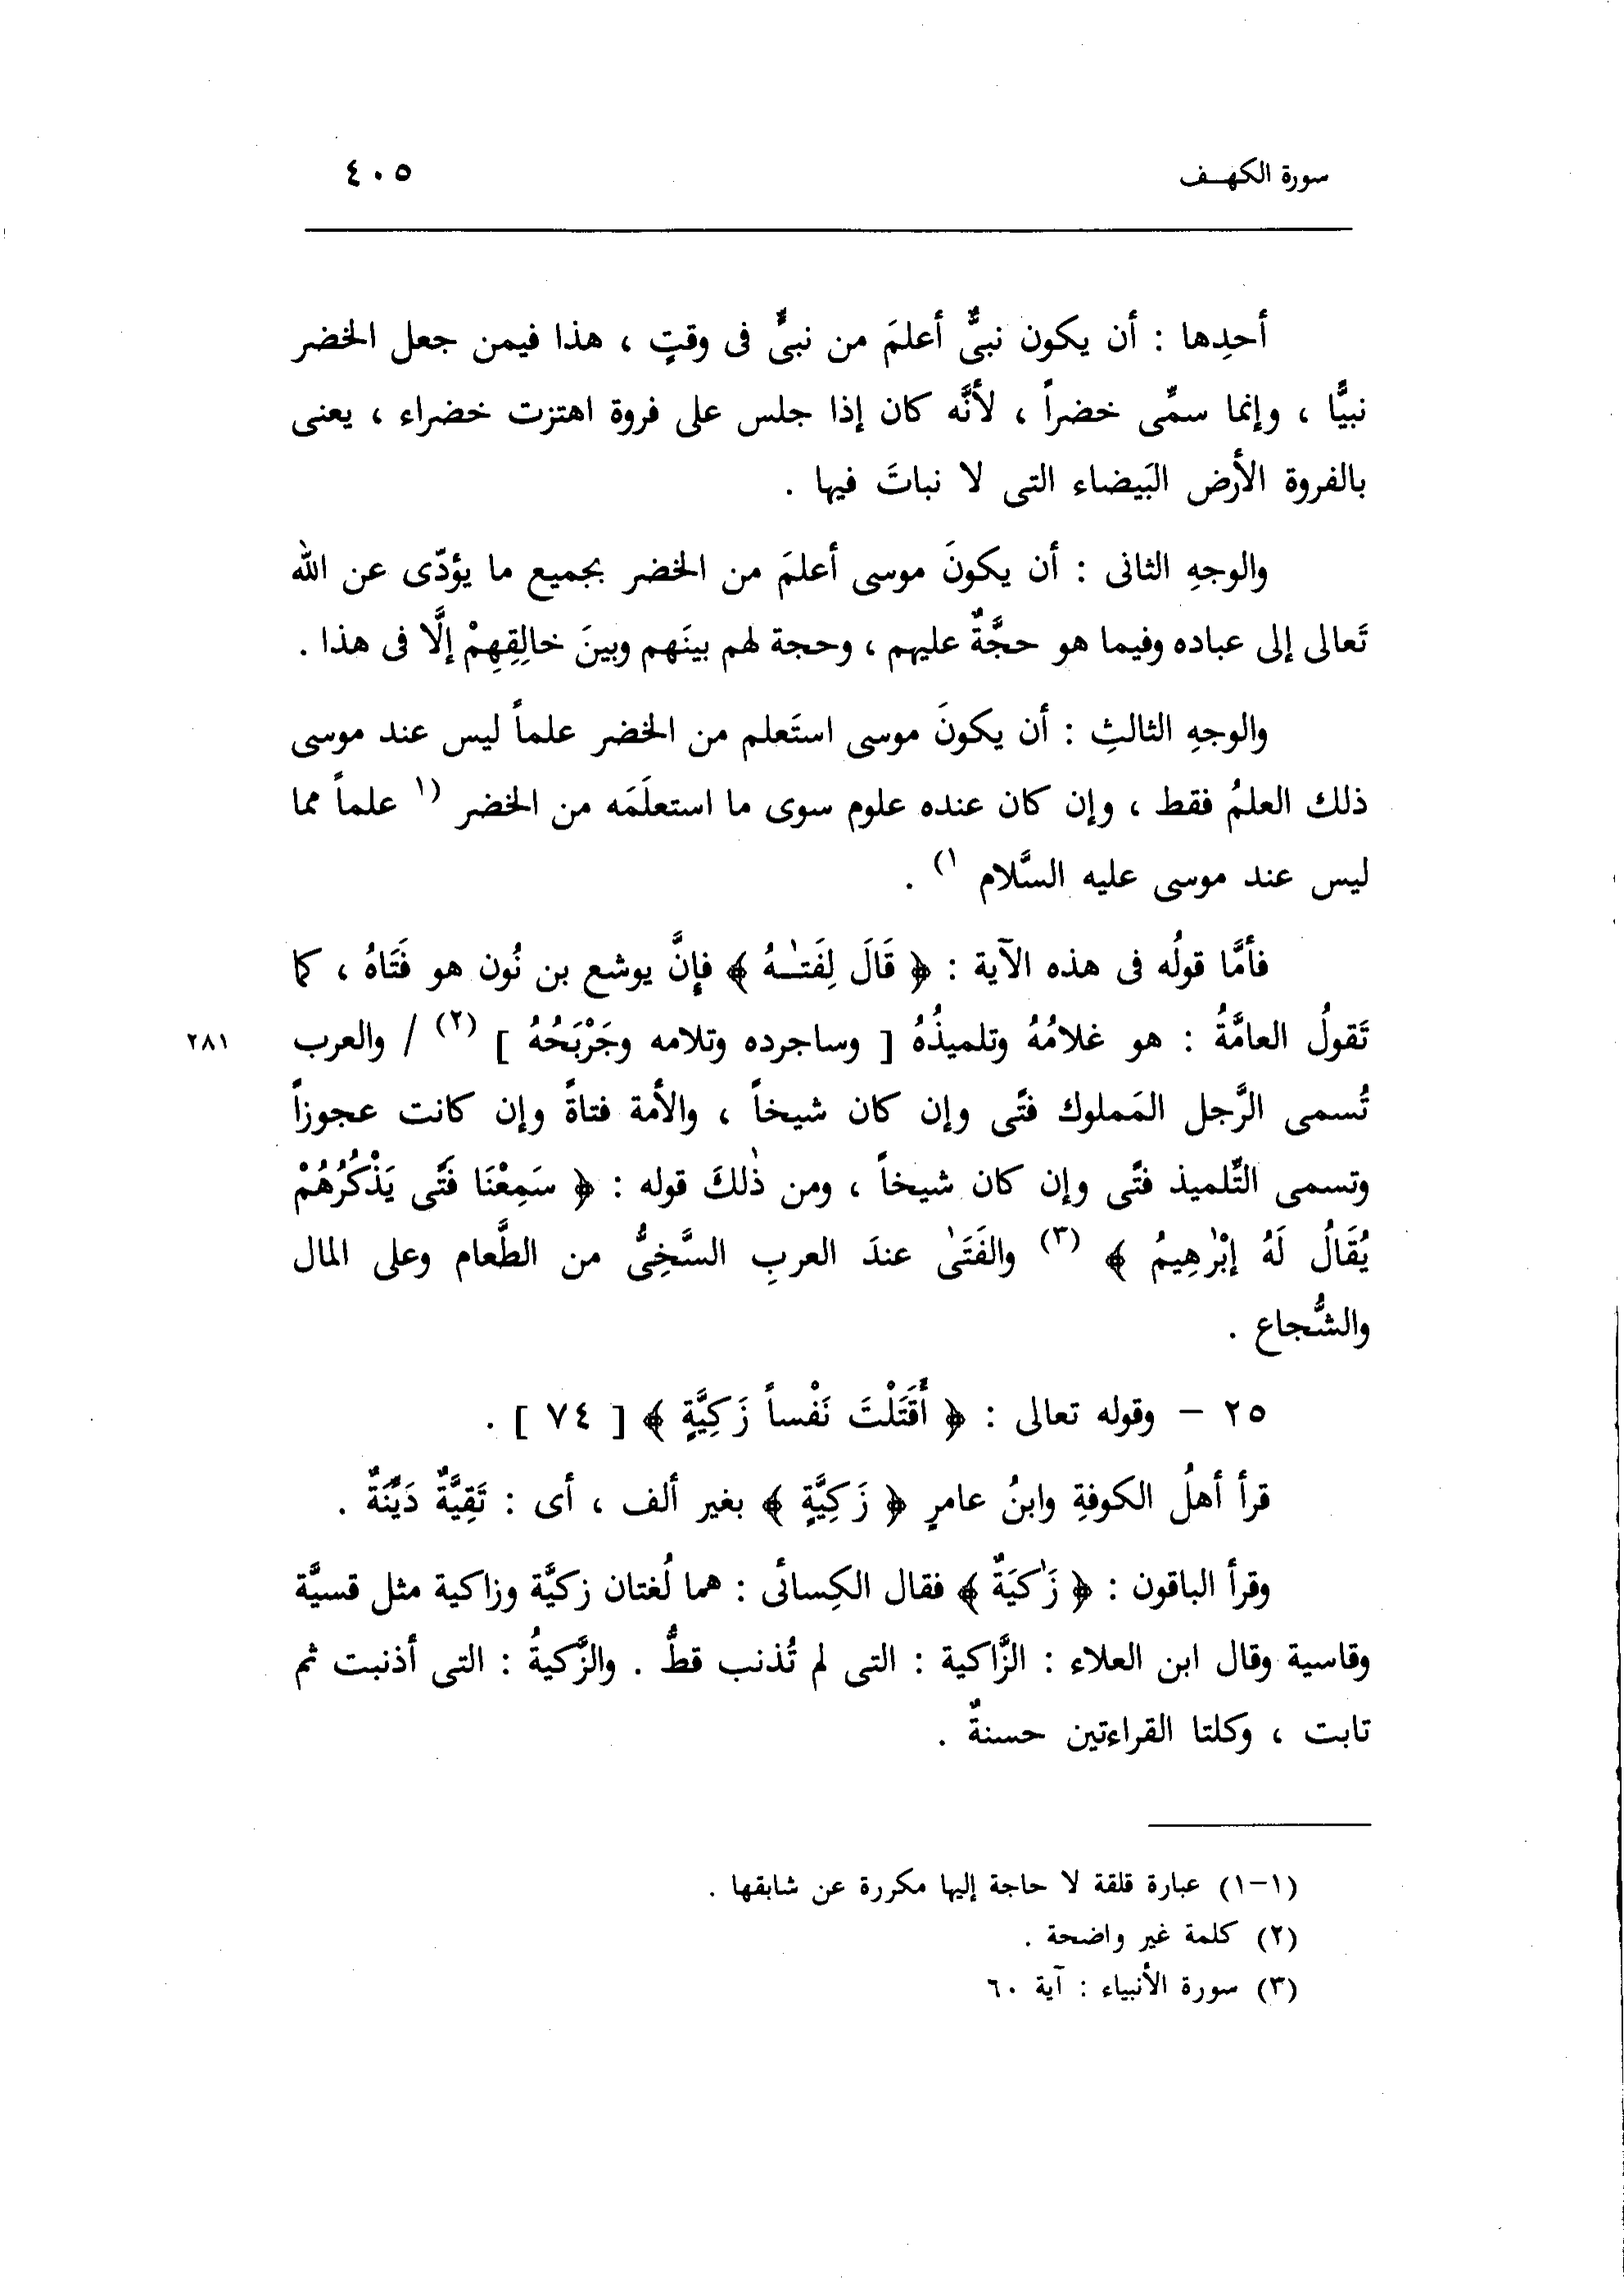 سورة الكهـف ٤٠٥
أحدِها : أن يكون نبىٌّ أعلمَ من نبىٍّ فى وقتٍ ، هذا فيمن جعل الخضر
نبيًّا ، وإنما سمِّى خضراً ، لأنَّه كان إذا جلس على فروة اهتزت خضراء ، يعنى
بالفروة الأرض البَيضاء التى لا نباتَ فيها .
والوجهِ الثانى : أن يكونَ موسى أعلمَ من الخضر بجميع ما يؤدّى عن الله
تَعالى إلى عباده وفيما هو حجَّةٌ عليهم ، وحجة لهم بينَهم وبينَ خالِقِهِمْ إلَّا فى هذا .
والوجهِ الثالثِ : أن يكونَ موسى استَعلم من الخضر علماً ليس عند موسى
ذلك العلمُ فقط ، وإن كان عنده علوم سوى ما استعلَمَه من الخضر (١ علماً مما
ليس عند موسى عليه السَّلام ١) .
فأمَّا قولُه فى هذه الآية : ﴿ قَالَ لِفَتىٰـهُ ﴾ فإنَّ يوشع بن نُون هو فَتَاهُ ، كما
تَقولُ العامَّةُ : هو غلامُهُ وتلميذُهُ [ وساجرده وتلامه وجَرْبَحُهُ ] (٢) / والعرب ٢٨١
تُسمى الرَّجل المَملوك فتًى وإن كان شيخاً ، والأمة فتاةً وإن كانت عجوزاً
وتسمى التِّلميذ فتًى وإن كان شيخاً ، ومن ذٰلكَ قوله : ﴿ سَمِعْنَا فَتًى يَذْكُرُهُمْ
يُقَالُ لَهُ إبْرٰهِيمُ ﴾ (٣) والفَتَىٰ عندَ العربِ السَّخِىُّ من الطَّعام وعلى المال
والشُّجاع .
٢٥ – وقوله تعالى : ﴿ أَقَتَلْتَ نَفْساً زَكِيَّةٍ ﴾ [ ٧٤ ] .
قرأ أهلُ الكوفةِ وابنُ عامرٍ ﴿ زَكِيَّةٍ ﴾ بغير ألف ، أى : تَقِيَّةٌ دَيِّنَةٌ .
وقرأ الباقون : ﴿ زَٰكيَةٌ ﴾ فقال الكِسائى : هما لُغتان زكيَّة وزاكية مثل قسيَّة
وقاسية وقال ابن العلاء : الزَّاكية : التى لم تُذنب قطُّ . والزَّكيةُ : التى أذنبت ثم
تابت ، وكلتا القراءتين حسنةٌ .
(١–١) عبارة قلقة لا حاجة إليها مكررة عن شابقها .
(٢) كلمة غير واضحة .
(٣) سورة الأنبياء : آية ٦٠